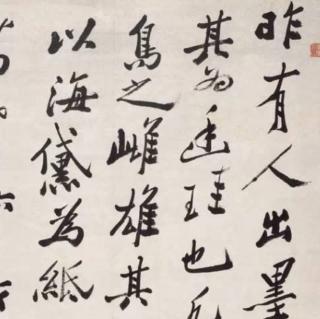 昨有人出墨
其為廷珪也凡
烏之雌雄其
以海黛為紙